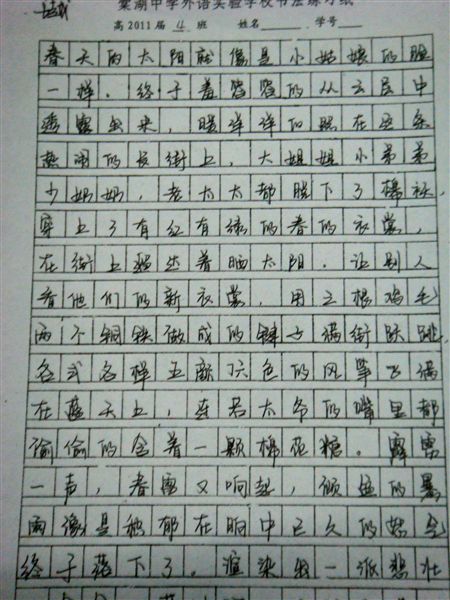 棠湖中学外语实验学校书法练习纸
高2011届 4 班 姓名 学号
春天的太阳就像是小姑娘的脸
一样，终于羞答答的从云层中
透露出来，暖洋洋的照在这条
热闹的长街上，大姐姐小弟弟
少奶奶，老太太都脱下了棉袄，
穿上了有红有绿的春的衣裳，
在街上踱达着晒太阳，让别人
看他们的新衣裳，用三根鸡毛
两个铜铁做成的毽子满街跃跳，
各式各样五颜六色的风筝飞满
在蓝天上，连若太爷的嘴里都
偷偷的含着一颗棉花糖。霹雳
一声，春雷又响起，倾盆的暴
雨像是积郁在胸中已久的怒气
终于落下了，渲染出一派悲壮